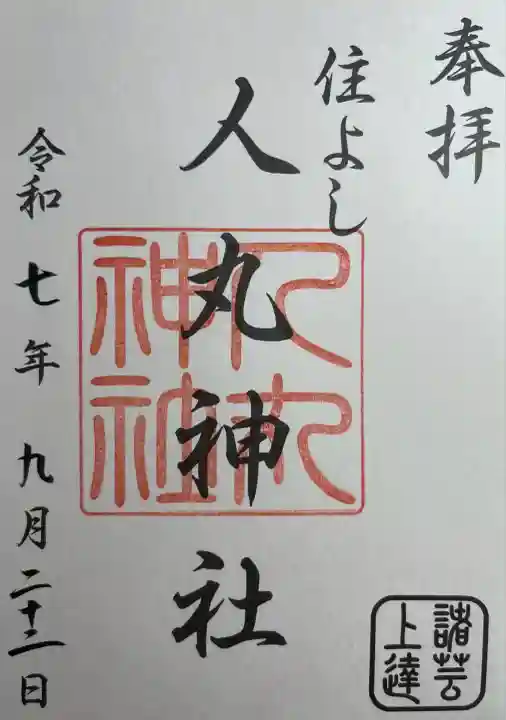 奉拝
住よし
人丸神社
令和七年九月二十二日
人丸
神社
諸芸
上達